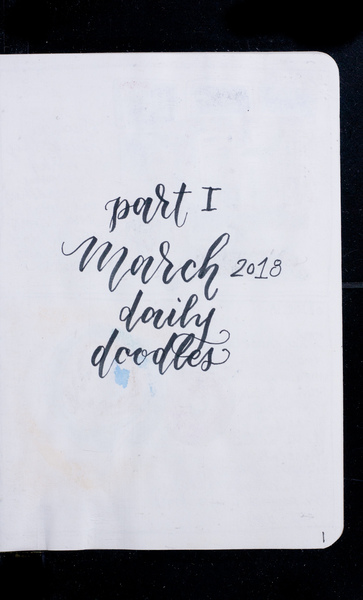 part I
March 2018
daily
doodles
1